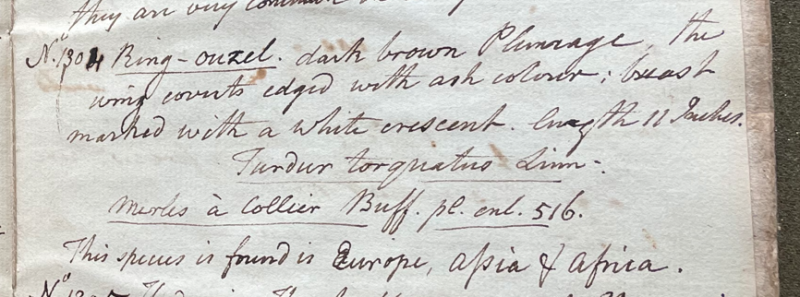 they are very common
No. 1304 Ring-ouzel. dark brown Plumage, the
wing coverts edged with ash colour; breast
marked with a white crescent. length 11 Inches.
Turdur torquatus Linn-.
Merles à Collier Buff. pl. enl. 516.
This species is found is Europe, Assia & Africa.